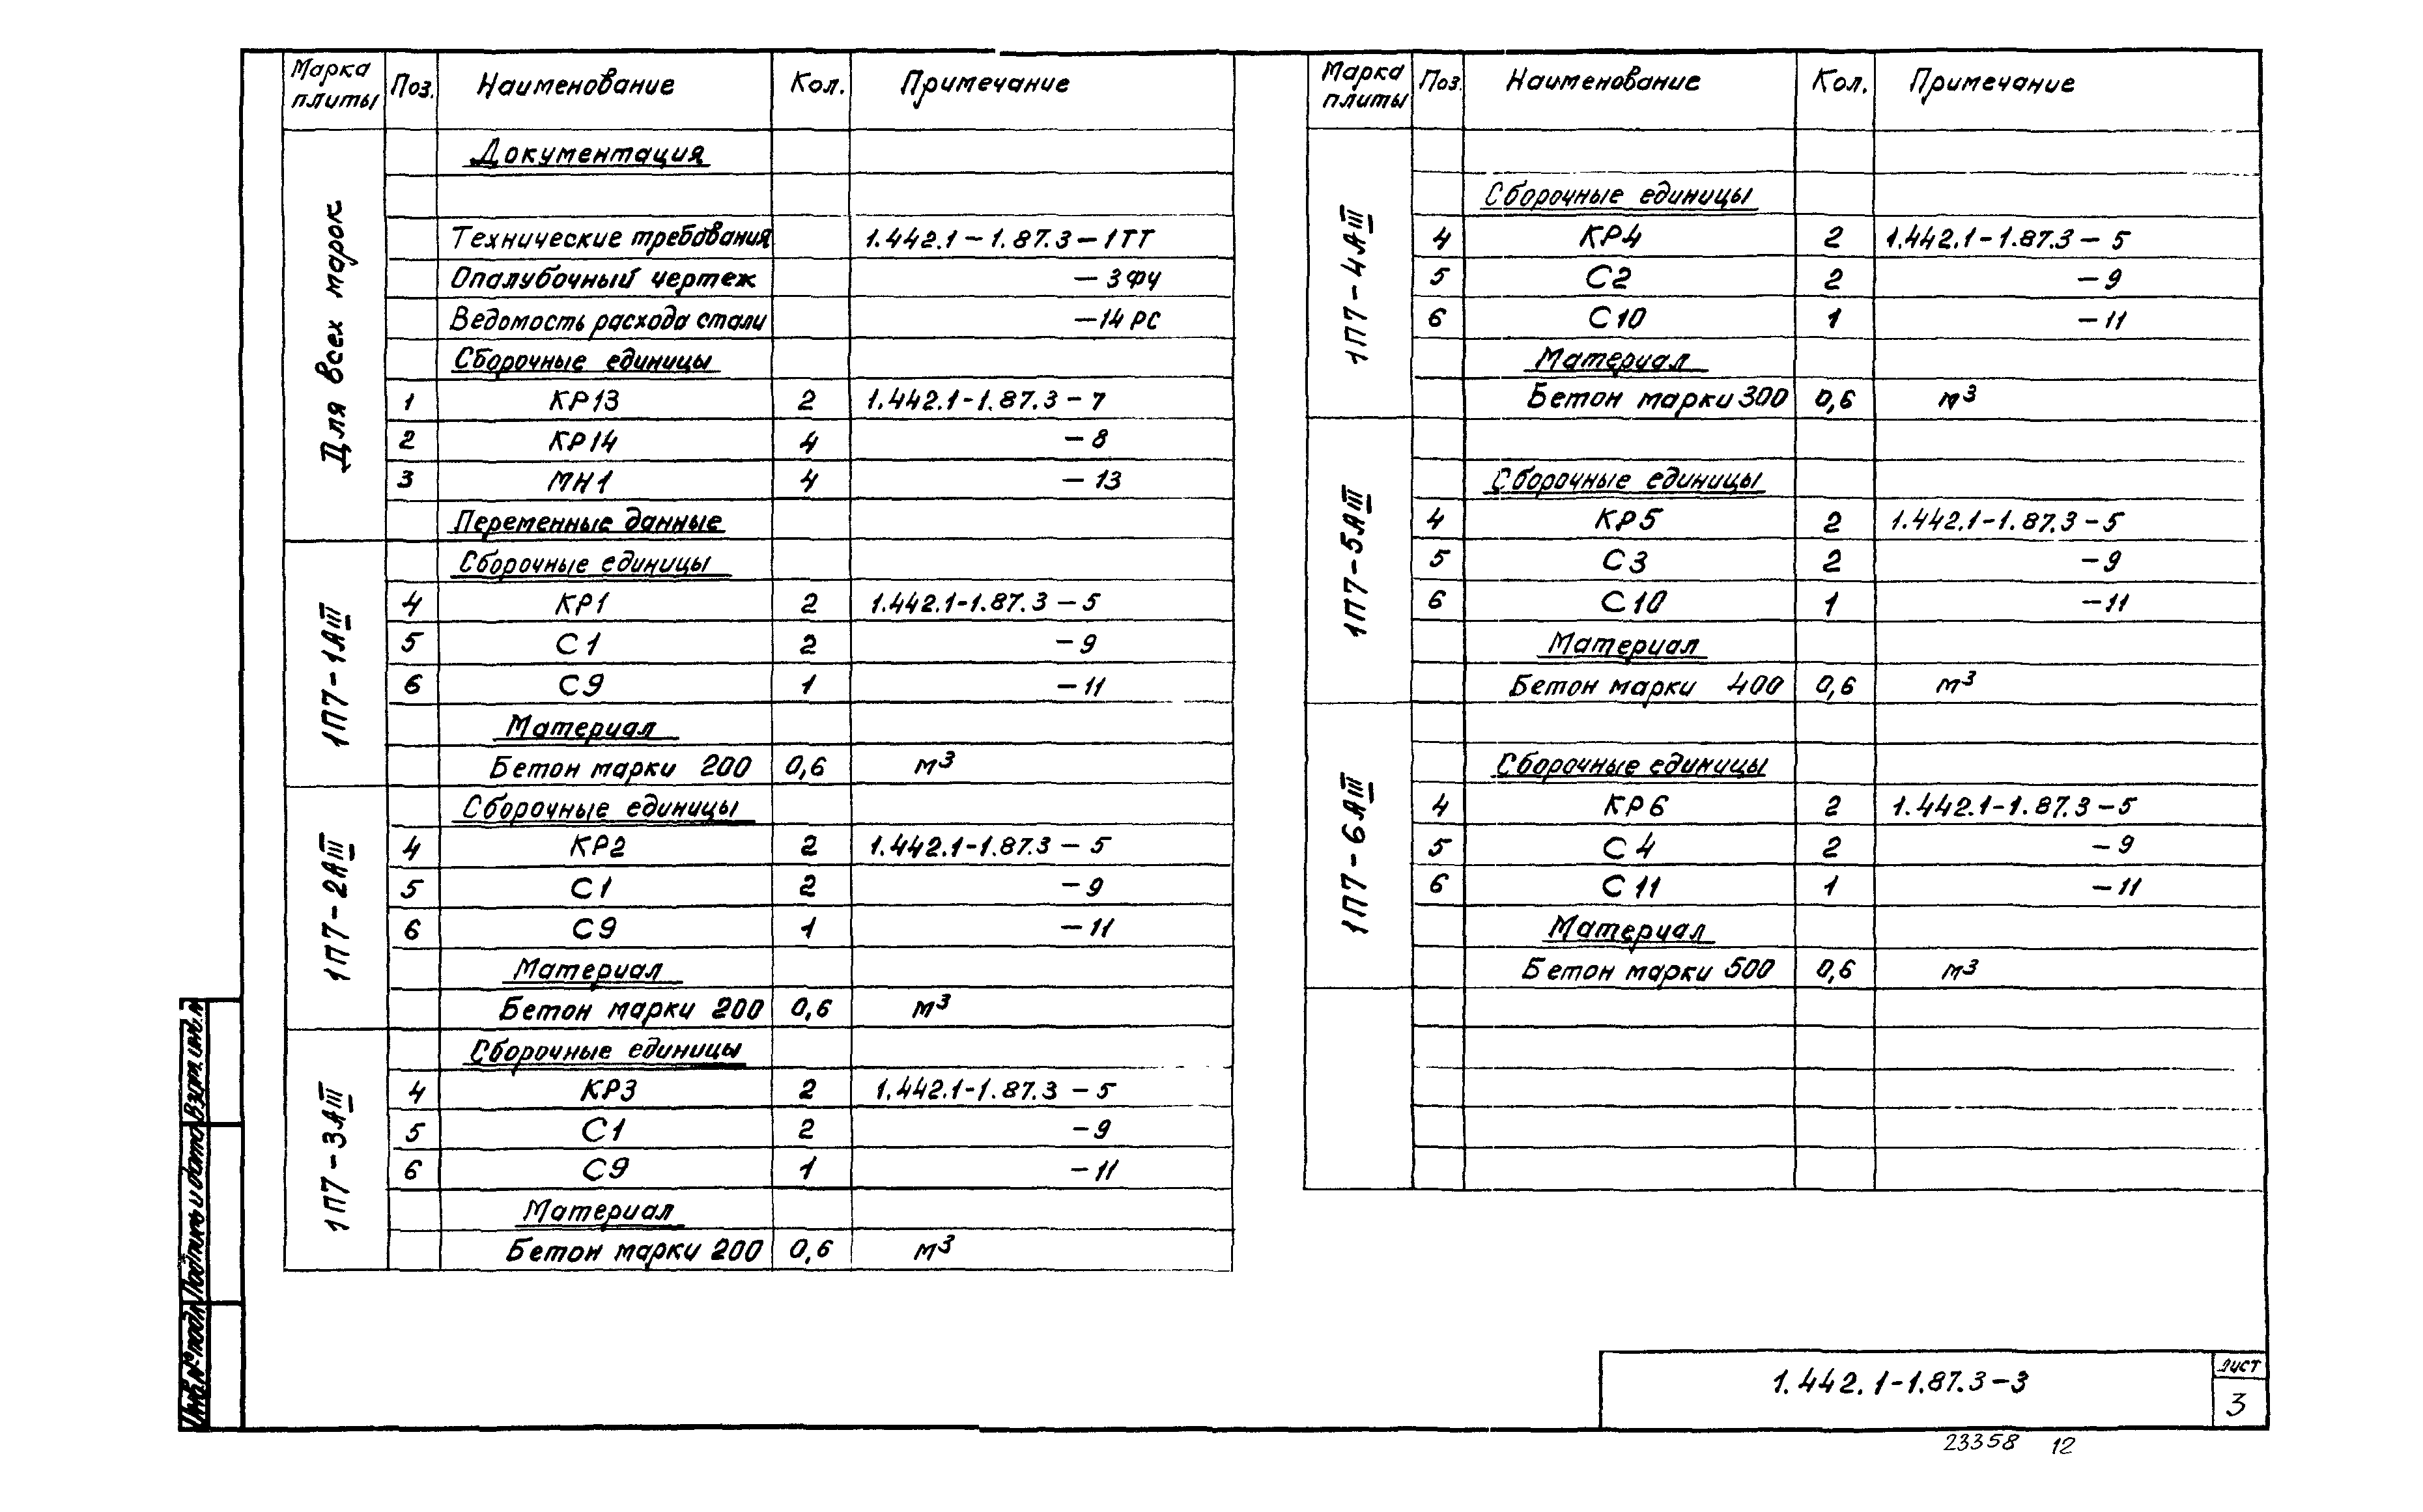 Марка плиты Поз. Наименование Кол. Примечание
Для всех марок
Документация
Технические требования 1.442.1-1.87.3-1ТТ
Опалубочный чертеж -3ФЧ
Ведомость расхода стали -14РС
Сборочные единицы
1 КР13 2 1.442.1-1.87.3-7
2 КР14 4 -8
3 МН1 4 -13
Переменные данные
1П7-1АIII
Сборочные единицы
4 КР1 2 1.442.1-1.87.3-5
5 С1 2 -9
6 С9 1 -11
Материал
Бетон марки 200 0,6 м³
1П7-2АIII
Сборочные единицы
4 КР2 2 1.442.1-1.87.3-5
5 С1 2 -9
6 С9 1 -11
Материал
Бетон марки 200 0,6 м³
1П7-3АIII
Сборочные единицы
4 КР3 2 1.442.1-1.87.3-5
5 С1 2 -9
6 С9 1 -11
Материал
Бетон марки 200 0,6 м³
Марка плиты Поз. Наименование Кол. Примечание
1П7-4АIII
Сборочные единицы
4 КР4 2 1.442.1-1.87.3-5
5 С2 2 -9
6 С10 1 -11
Материал
Бетон марки 300 0,6 м³
1П7-5АIII
Сборочные единицы
4 КР5 2 1.442.1-1.87.3-5
5 С3 2 -9
6 С10 1 -11
Материал
Бетон марки 400 0,6 м³
1П7-6АIII
Сборочные единицы
4 КР6 2 1.442.1-1.87.3-5
5 С4 2 -9
6 С11 1 -11
Материал
Бетон марки 500 0,6 м³
Инв.№ подл. Подпись и дата Взам. инв.№
1.442.1-1.87.3-3
Лист
3
23358 12